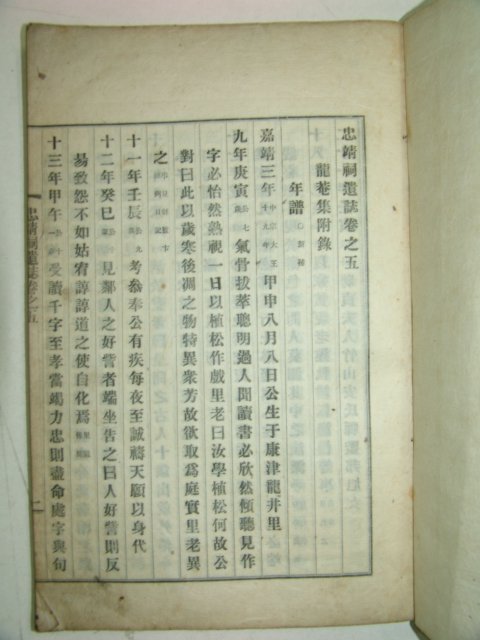 忠靖祠遺誌卷之五
龍菴集附錄
年譜
嘉靖三年中宗大王十九年甲申八月八日公生于康津龍井里
九年庚寅公七歲氣骨拔萃聰明過人聞讀書必欣然傾聽見作
字必怡然熟視一日以植松作戲里老曰汝學植松何故公
對曰此以歲寒後凋之物特異衆芳故欲取爲庭實里老異
之
十一年壬辰公九歲考叅奉公有疾每夜至誠禱天願以身代
十二年癸巳公十歲見鄰人之好訾者端坐告之曰人好訾則反
易致怨不如姑宥諄諄道之使自化焉
十三年甲午公十一歲受讀千字至孝當竭力忠則盡命處字與句
忠靖祠遺誌 卷之五